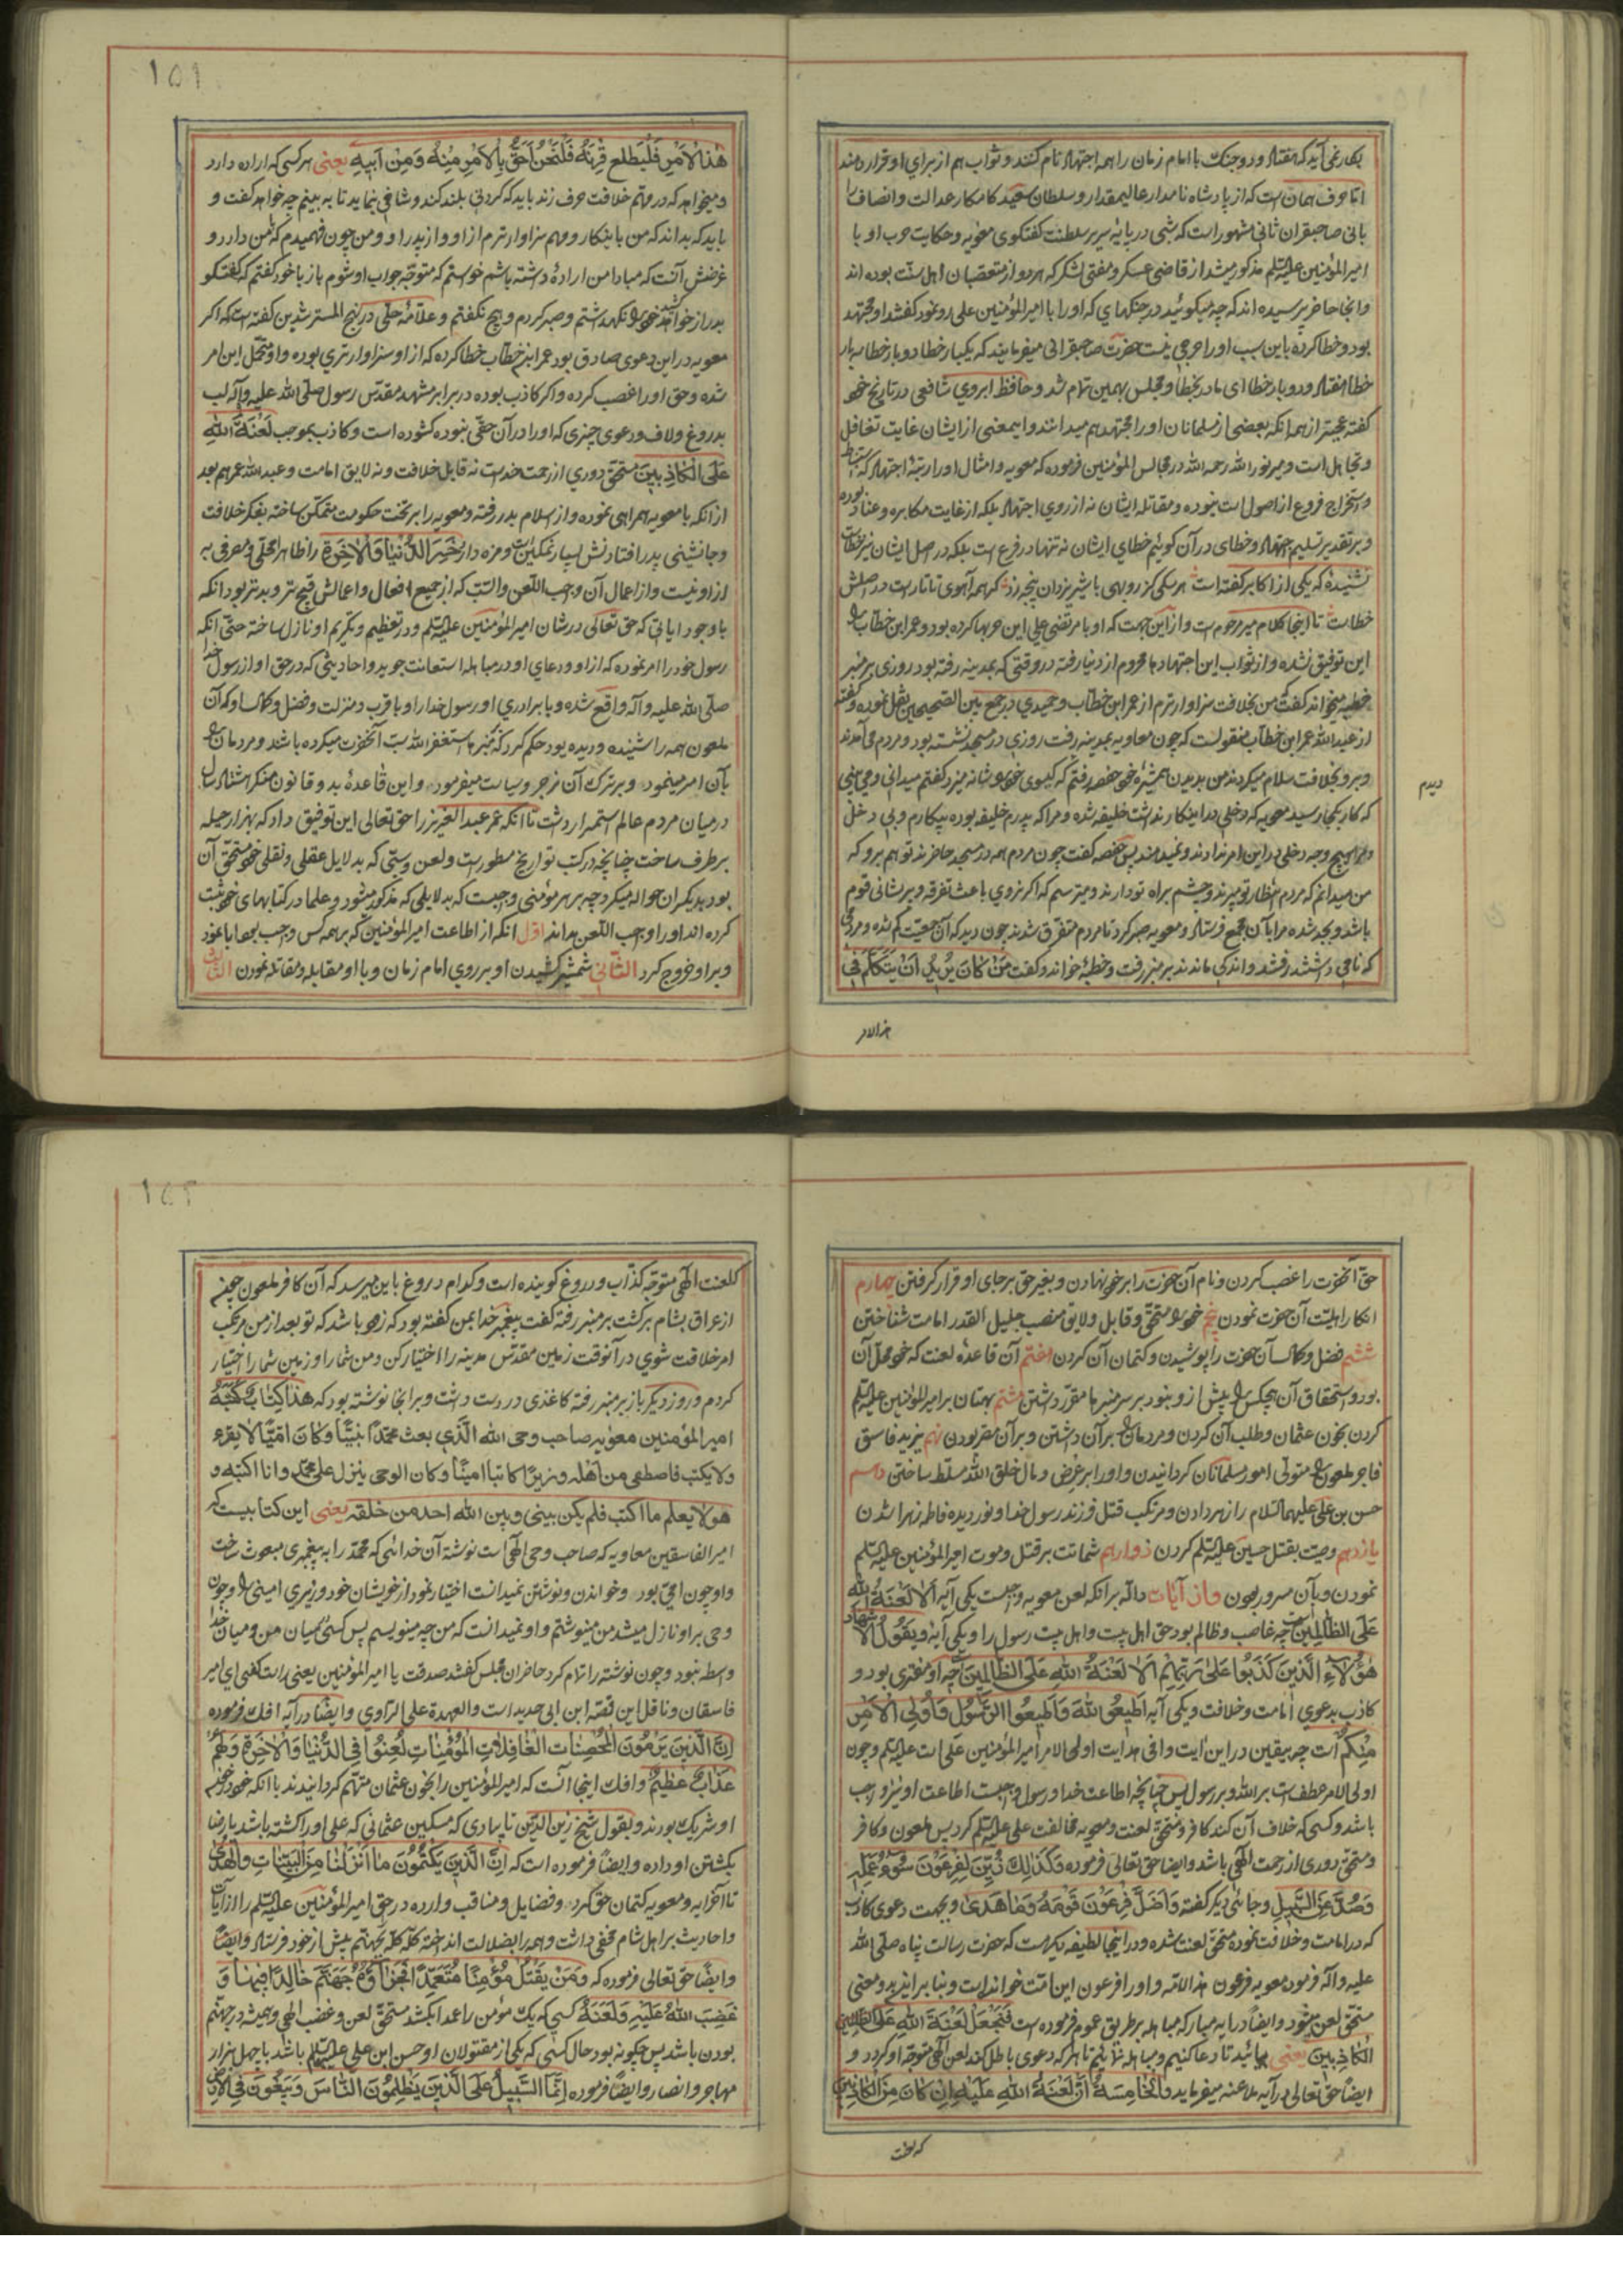 یکبارنمی‌آید که هفتاد و دو جنگ با امام زمان را همه اجتهاد نام کنند و ثواب هم از برای او قرار دهند
اما حرف همان است که از پادشاه نامدار عالیمقدار و سلطان سعید کامکار عدالت و انصاف
بانی صاحبقران ثانی مشهور است که شبی در پایهٔ سریر سلطنت گفتگوی معویه و حکایت حرب او با
امیر المؤمنین علیه السلم مذکور میشد از قاضی عسکر و مفتی لشکر که هر دو از متعصبان اهل سنت بوده اند
و آنجا حاضر پرسیده اند که چه میگوئید در جنگهای که او را با امیر المؤمنین علی رو نمود گفتند او مجتهد
بود و خطا کرده باین سبب او را حرجی نیست حضرت صاحبقرانی میفرمایند که یکبار خطا دو بار خطا سه بار
خطا هفتاد و دو بار خطا ای مادر بخطا و مجلس بهمین تمام شد و حافظ ابروی شافعی در تاریخ خود
گفته عجبتر از همه انکه بعضی از مسلمانان او را مجتهد هم میدانند و این معنی از ایشان غایت تغافل
و تجاهل است و میر نور الله رحمه الله در مجالس المؤمنین فرموده که معویه و امثال او را رتبهٔ اجتهاد که استنباط
و استخراج فروع از اصول است نبوده و مقاتله ایشان نه از روی اجتهاد بلکه از غایت مکابره و عناد بوده
و بر تقدیر تسلیم اجتهاد و خطای در آن گوئیم خطای ایشان نه تنها در فرع است بلکه در اصل ایشان نیز خطاست
نشنیدهٔ که یکی از اکابر گفته است هر سکی کز روبهی با شیر یزدان پنجه زد کر همه آهوی تاتارست در اصلش
خطاست تا اینجا کلام میر مرحوم است و از این جهت که او با مرتضی علی این حربها کرده بود و عمر ابن خطاب را
این توفیق نشده و از ثواب این اجتهاد ها محروم از دنیا رفته در وقتی که بمدینه رفته بود روزی بر منبر
خطبه میخواند گفت من بخلافت سزاوارترم از عمر ابن خطاب و حمیدی در جمع بین الصحیحین نقل نموده و گفته
از عبد الله عمر ابن خطاب منقولست که چون معاویه بمدینه رفت روزی در مسجد نشسته بود و مردم می‌آمدند
و برو بخلافت سلام میکردند من بدیدن همشیرهٔ خود حفصه رفتم که گیسوی خود را شانه میزد گفتم میدانی و می بینی
که کار بکجا رسید معویه که دخلی در اینکار نداشت خلیفه شده و مرا که پدرم خلیفه بوده بیکارم و بی دخل
و مرا هیچ وجه دخلی در این امر ندادند و نمیدهند پس حفصه گفت چون مردم همه در مسجد حاضرند تو هم برو که
من میدانم که مردم انتظار تو میبرند و چشم براه تو دارند و میترسم که اگر نروی باعث تفرقه و پریشانی قوم
باشد و بجد شده مرا بآن مجمع فرستاد و معویه صبر کرد تا مردم متفرق شدند چون دید که آن جمعیت کم شده و مردمی
که نامی داشتند رفتند و اندکی ماندند بر منبر رفت و خطبهٔ خواند و گفت مَنْ کَانَ یُرِیدُ اَنْ یَتَکَلَّمَ فِی
دیدم
هذالامر
۱۵۱
هٰذَا الْاَمْرِ فَلْیَطْلَعْ قَرْنَهُ فَلَنَحْنُ اَحَقُّ بِالْاَمْرِ مِنْهُ وَمِنْ اَبِیهِ یعنی هر کسی که اراده دارد
و میخواهد که در مهم خلافت حرف زند باید که گردنی بلند کند و شاخی بنماید تا به بینم چه خواهد گفت و
باید که بداند که من باینکار و مهم سزاوارترم از او و از پدر او و من چون فهمیدم که بمن دارد و
غرضش آنست که مبادا من ارادهٔ داشته باشم خواستم که متوجه جواب او شوم باز با خود گفتم که گفتگو
بدراز خواهد کشید خود را نگهداشتم و صبر کردم و هیچ نگفتم و علامه حلی در نهج المسترشدین گفته است که اگر
معویه در این دعوی صادق بود عمر ابن خطاب خطا کرده که از او سزاوارتری بوده و او متحمل این امر
شده و حق او را غصب کرده و اگر کاذب بوده در برابر مشهد مقدس رسول صلی الله علیه و آله لب
بدروغ و لاف و دعوی چیزی که او را در آن حقی نبوده گشوده است و کاذب بموجب لَعْنَةُ اللهِ
عَلَی الْکَاذِبِینَ مستحق دوری از رحمت خداست نه قابل خلافت و نه لایق امامت و عبد الله عمر هم بعد
از انکه با معویه همراهی نموده و از اسلام بدر رفته و معویه را بر تخت حکومت متمکن ساخته بفکر خلافت
و جانشینی پدر افتادنش بسیار نمکین است و مزه دار خَسِرَ الدُّنْیَا وَالْآخِرَةَ را ظاهرا محلی و مصرفی به
از او نیست و از اعمال آن واجب اللعن والسب که از جمیع افعال و اعمالش قبیح تر و بدتر بود آنکه
با وجود ایاتی که حق تعالی در شان امیر المؤمنین علیه السلم و در تعظیم و تکریم او نازل ساخته حتی انکه
رسول خود را امر نموده که از او و دعای او در مباهله استعانت جوید و احادیثی که در حق او از رسول خدا
صلی الله علیه و آله واقع شده و با برادری او رسول خدا را و با قرب و منزلت و فضل و کمالات او که آن
ملعون همه را شنیده و دیده بود حکم کرد که منبرها استغفر الله سب آنحضرت میکرده باشند و مردمان را
بآن امر مینمود و بر ترک آن زجر و سیاست میفرمود و این قاعدهٔ بد و قانون منکر هشتاد سال
در میان مردم عالم استمرار داشت تا انکه عمر عبد العزیز را حق تعالی این توفیق داد که بهزار حیله
بر طرف ساخت چنانچه در کتب تواریخ مسطور است و لعن و سبی که بدلایل عقلی و نقلی خود مستحق آن
بود بدیگران حواله میکرد و چه بر هر مؤمنی واجبست که بدلایلی که مذکور میشود و علما در کتابهای خود ثبت
کرده اند او را واجب اللعن بداند اول انکه از اطاعت امیر المؤمنین که بر همه کس واجب بود ابا نمود
و بر او خروج کرد الثانی شمشیر کشیدن او بر روی امام زمان و با او مقابله و مقاتله نمودن الثالث
حق آنحضرت را غصب کردن و نام آن حضرت را بر خود نهادن و بغیر حق بر جای او قرار گرفتن چهارم
انکار اهلیت آن حضرت نمودن پنجم خود را مستحق و قابل و لایق منصب جلیل القدر امامت شناختن
ششم فضل و کمالات آن حضرت را پوشیدن و کتمان آن کردن هفتم آن قاعدهٔ لعنت که خود محل آن
بود و استحقاق آن هیچکس را پیش از و نبود بر سر منبرها مقرر داشتن هشتم بهتان بر امیر المؤمنین علیه السلم
کردن بخون عثمان و طلب آن کردن و مردمان را بر آن داشتن و بر آن مصر بودن نهم یزید فاسق
فاجر ملعون را متولی امور مسلمانان گردانیدن و او را بر عرض و مال خلق الله مسلط ساختن دهم
حسن بن علی علیهما السلام را زهر دادن و مرتکب قتل فرزند رسول خدا و نور دیده فاطمه زهرا شدن
یازدهم وصیت بقتل حسین علیه السلم کردن دوازدهم شماتت بر قتل و موت امیر المؤمنین علیه السلم
نمودن و بآن مسرور بودن و از آیات داله بر انکه لعن معویه واجبست یکی آیه اَلَا لَعْنَةُ اللهِ
عَلَی الظَّالِمِینَ است چه غاصب و ظالم بود حق اهل بیت و اهل بیت رسول را و یکی آیه وَیَقُولُ الْاَشْهَادُ
هٰؤُلَاءِ الَّذِینَ کَذَبُوا عَلیٰ رَبِّهِمْ اَلَا لَعْنَةُ اللهِ عَلَی الظَّالِمِینَ چه او مفتری بود و
کاذب بدعوی امامت و خلافت و یکی آیه اَطِیعُوا اللهَ وَاَطِیعُوا الرَّسُولَ وَاُولِی الْاَمْرِ
مِنْکُمْ است چه بیقین در این ایت وافی هدایت اولی الامر امیر المؤمنین علی است علیه السلم و چون
اولی الامر عطفست بر الله و بر رسول پس چنانچه اطاعت خدا و رسول واجبست اطاعت او نیز واجب
باشد و کسی که خلاف آن کند کافر و مستحق لعنت و معویه مخالفت علی علیه السلم کرد پس ملعون و کافر
و مستحق دوری از رحمت الهی باشد و ایضا حق تعالی فرموده وَکَذٰلِکَ زُیِّنَ لِفِرْعَوْنَ سُوءُ عَمَلِهِ
وَصُدَّ عَنِ السَّبِیلِ و جائی دیگر گفته وَاَضَلَّ فِرْعَوْنُ قَوْمَهُ وَمَا هَدیٰ و بجهت دعوی کاذب
که در امامت و خلافت نموده مستحق لعنت شده و در اینجا لطیفه دیگرست که حضرت رسالت پناه صلی الله
علیه و آله فرمود معویه فرعون هذه الامة و او را فرعون این امت خوانده است و بنابراین بدو معنی
مستحق لعن میشود و ایضا در آیه مبارکه مباهله بر طریق عموم فرموده است فَنَجْعَلْ لَعْنَةَ اللهِ عَلَی الظالمین
الْکَاذِبِینَ یعنی بیائید تا دعا کنیم و مباهله نمائیم تا هر که دعوی باطل کند لعن الهی متوجه او گردد و
ایضا حق تعالی در آیه ملاعنه میفرماید وَالْخَامِسَةُ اَنَّ لَعْنَةَ اللهِ عَلَیْهِ اِنْ کَانَ مِنَ الْکَاذِبِینَ
که لعنت
۱۵۲
که لعنت الهی متوجه کذاب و دروغ گوینده است و کدام دروغ باین میرسد که آن کافر ملعون چون
از عراق بشام برگشت بر منبر رفته گفت پیغمبر خدا بمن گفته بود که زود باشد که تو بعد از من مرتکب
امر خلافت شوی در آنوقت زمین مقدس مدینه را اختیار کن و من شما را و زمین شما را اختیار
کردم و روز دیگر باز بر منبر رفته کاغذی در دست داشت و بر انجا نوشته بود که هٰذَا کِتَابٌ کَتَبَهُ
امیر المؤمنین معویه صاحب وحی الله الذی بعث محمدا نبیا وکان امیا لا یقرء
ولا یکتب فاصطفی من اهله وزیرا کاتبا امینا وکان الوحی ینزل علی محمد وانا اکتبه و
هو لا یعلم ما اکتب فلم یکن بینی و بین الله احد من خلقه یعنی این کتابیست که
امیر الفاسقین معاویه که صاحب وحی الهی است نوشته آن خدائی که محمد را به پیغمبری مبعوث ساخت
و او چون امی بود و خواندن و نوشتن نمیدانست اختیار نمود از خویشان خود وزیری امینی را و چون
وحی بر او نازل میشد من مینوشتم و او نمیدانست که من چه مینویسم پس کسی میان من و میان خدا
واسطه نبود و چون نوشته را تمام کرد حاضران مجلس گفتند صدقت یا امیر المؤمنین یعنی راست گفتی ای امیر
فاسقان و ناقل این قصه ابن ابی حدید است والعهدة علی الراوی و ایضا در آیه افک فرموده
اِنَّ الَّذِینَ یَرْمُونَ الْمُحْصَنَاتِ الْغَافِلَاتِ الْمُؤْمِنَاتِ لُعِنُوا فِی الدُّنْیَا وَالْآخِرَةِ وَلَهُمْ
عَذَابٌ عَظِیمٌ و افک اینجا آنست که امیر المؤمنین را بخون عثمان متهم گردانیدند با انکه خود در خون
او شریک بودند و بقول شیخ زین الدین تایبادی که مسکین عثمانی که علی او را کشته باشد یا رضا
بکشتن او داده و ایضا فرموده است که اِنَّ الَّذِینَ یَکْتُمُونَ مَا اَنْزَلْنَا مِنَ الْبَیِّنَاتِ وَالْهُدیٰ
تا آخر ایه و معویه کتمان حق کرد و فضایل و مناقب وارده در حق امیر المؤمنین علیه السلم را از آیات
و احادیث بر اهل شام مخفی داشت و همه را بضلالت انداخته گله گله بجهنم پیش از خود فرستاد و ایضا
و ایضا حق تعالی فرموده که وَمَنْ یَقْتُلْ مُؤْمِنًا مُتَعَمِّدًا فَجَزَاؤُهُ جَهَنَّمُ خَالِدًا فِیهَا وَ
غَضِبَ اللهُ عَلَیْهِ وَلَعَنَهُ کسی که یک مؤمن را عمدا بکشد مستحق لعن و غضب الهی و همیشه در جهنم
بودن باشد پس چگونه بود حال کسی که یکی از مقتولان او حسن ابن علی علیهما السلم باشد با چهل هزار
مهاجر و انصار و ایضا فرموده اِنَّمَا السَّبِیلُ عَلَی الَّذِینَ یَظْلِمُونَ النَّاسَ وَیَبْغُونَ فِی الْاَرْضِ